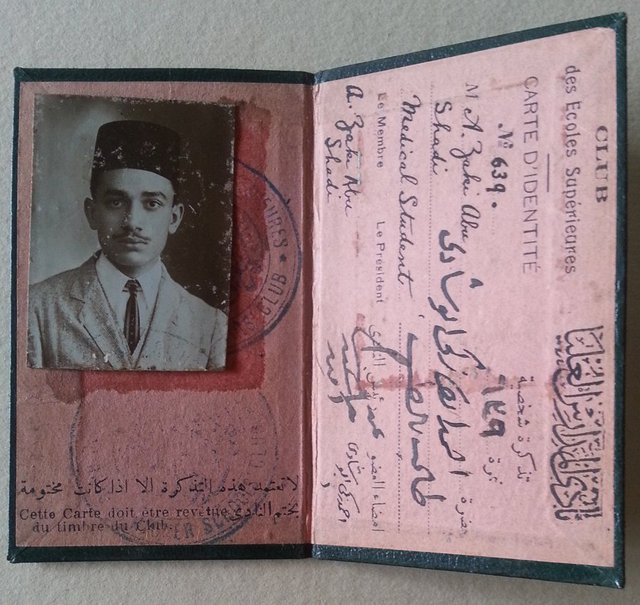 لاتعتمد هذه التذكرة الا اذا كانت مختومة
Cette Carte doit être revêtue بختم النادي
du timbre du Club.
CLUB
des Ecoles Supérieures
نادي المدارس العليا
CARTE D'IDENTITÉ
تذكرة شخصية
Nº 639.
نمرة ٦٣٩
M A. Zaki Abu
Shadi
حضرة احمد زكي ابو شادي
Medical Student
Le Membre Le Président
امضاء العضو رئيس النادي
A. Zaki Abu
Shadi
احمد زكي ابو شادي